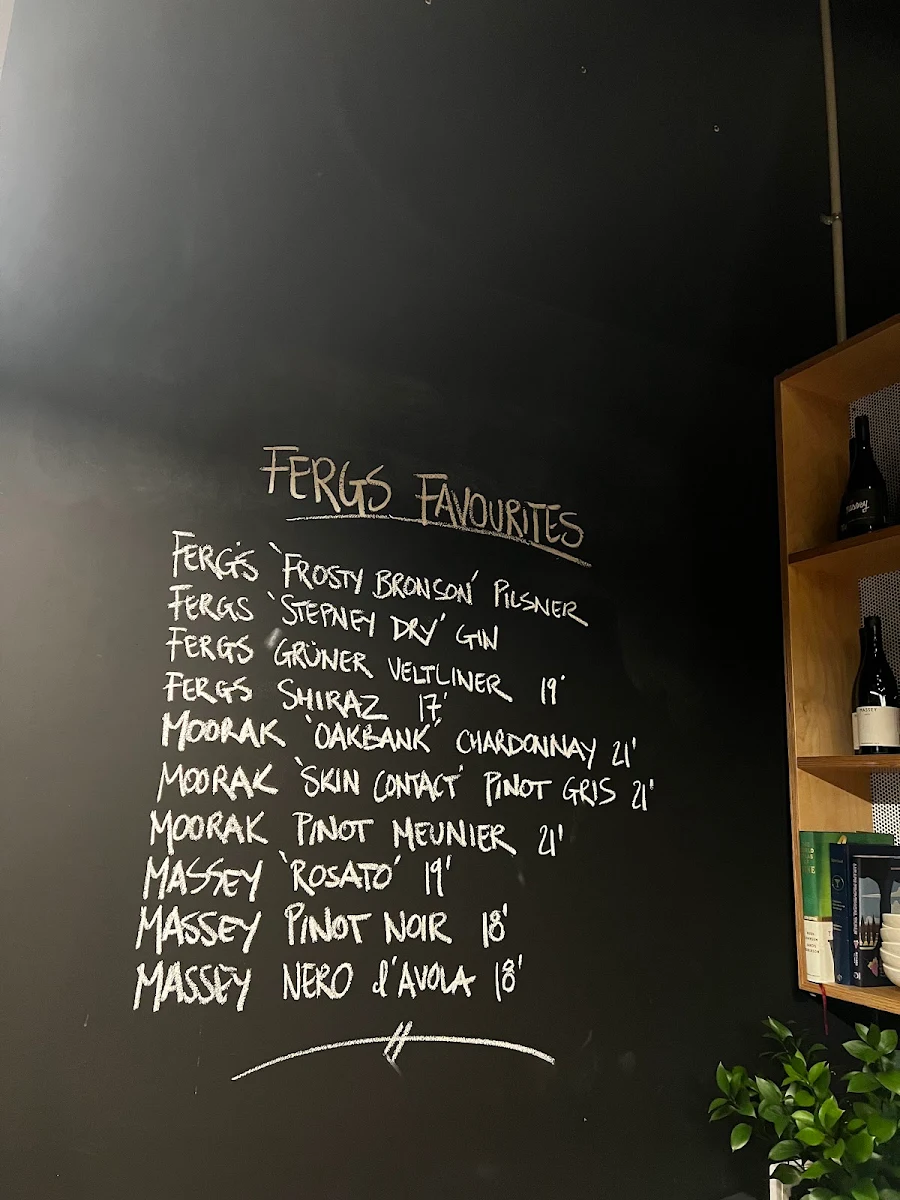 FERGS FAVOURITES
FERG'S 'FROSTY BRONSON' PILSNER
FERGS 'STEPNEY DRY' GIN
FERGS GRÜNER VELTLINER 19'
FERGS SHIRAZ 17'
MOORAK 'OAKBANK' CHARDONNAY 21'
MOORAK 'SKIN CONTACT' PINOT GRIS 21'
MOORAK PINOT MEUNIER 21'
MASSEY 'ROSATO' 19'
MASSEY PINOT NOIR 18'
MASSEY NERO d'AVOLA 18'
MASSEY